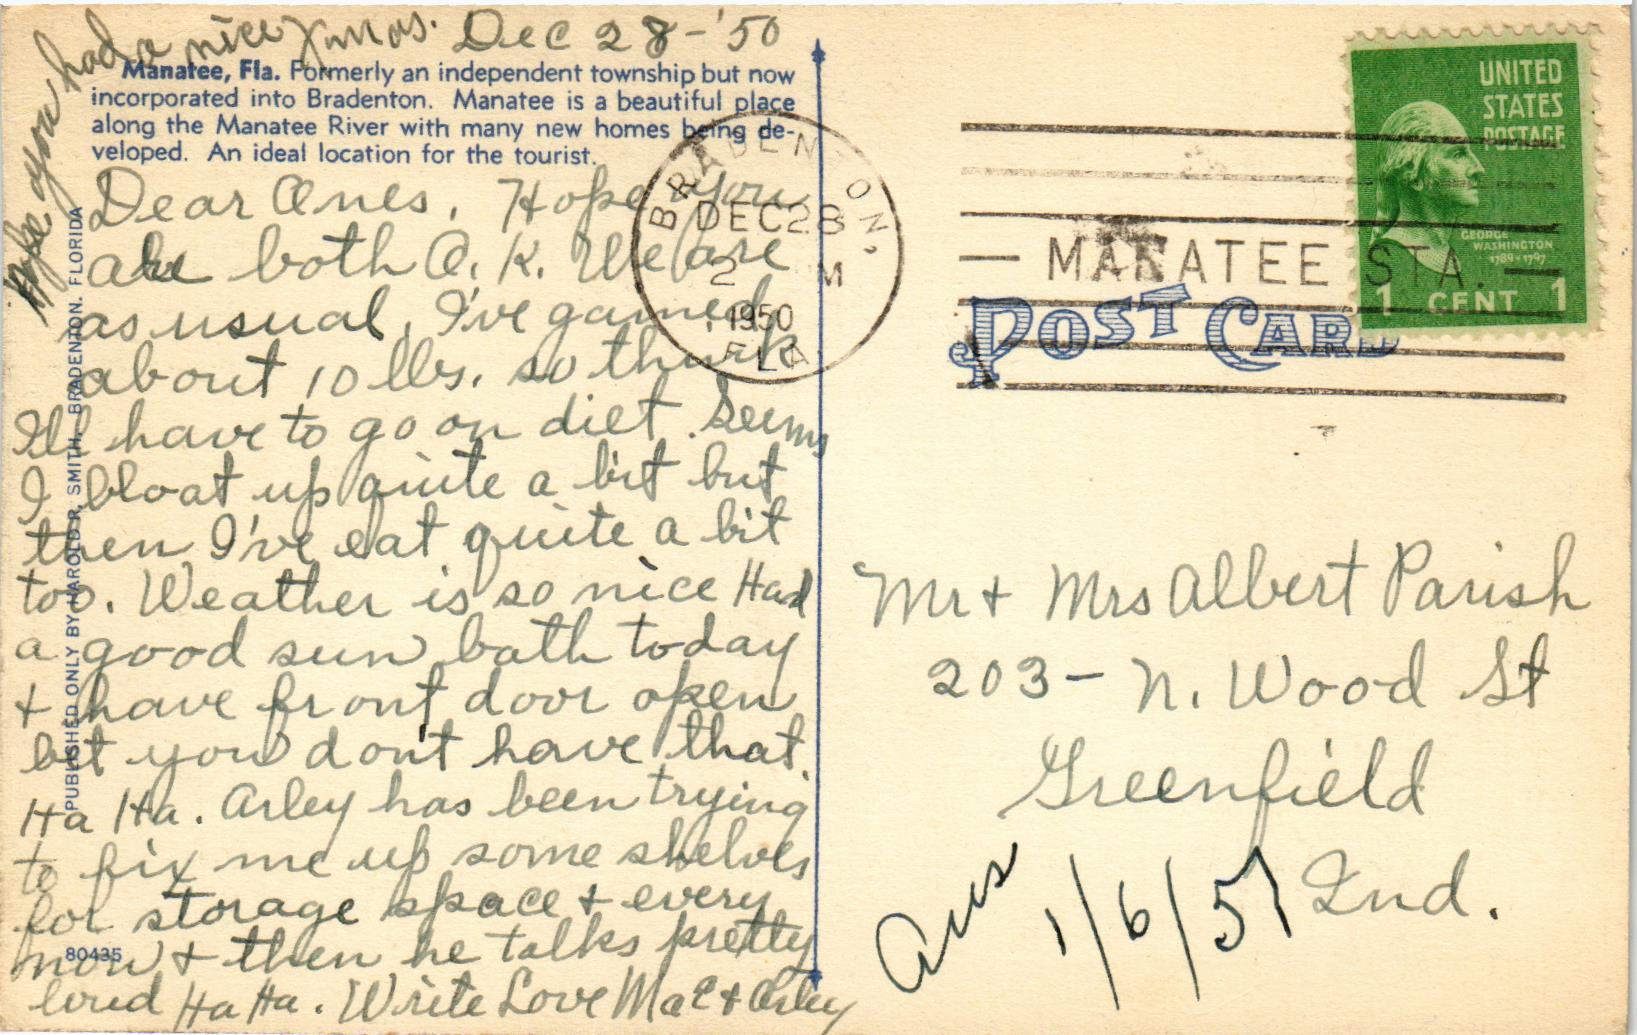 Hope you had a nice Xmas. Dec 28-'50
Manatee, Fla. Formerly an independent township but now
incorporated into Bradenton. Manatee is a beautiful place
along the Manatee River with many new homes being de-
veloped. An ideal location for the tourist.
Dear Ones, Hope you
are both O.K. We are
as usual, I've gained
about 10 lbs. so think
I'll have to go on diet. Seems
I bloat up quite a bit but
then I've eat quite a bit
too. Weather is so nice Had
a good sun bath today
+ have front door open
but you dont have that.
Ha Ha. Arley has been trying
to fix me up some shelves
for storage space + every
now + then he talks pretty
loud Ha Ha. Write Love Mae + Arley
PUBLISHED ONLY BY HAROLD R. SMITH, BRADENTON, FLORIDA
80435
BRADENTON,
DEC 28
2 M
1950
FLA
MANATEE STA.
UNITED
STATES
POSTAGE
GEORGE
WASHINGTON
1789-1797
1 CENT 1
POST CARD
Mr + Mrs Albert Parish
203- N. Wood St
Greenfield
Ind.
Ans 1/6/51